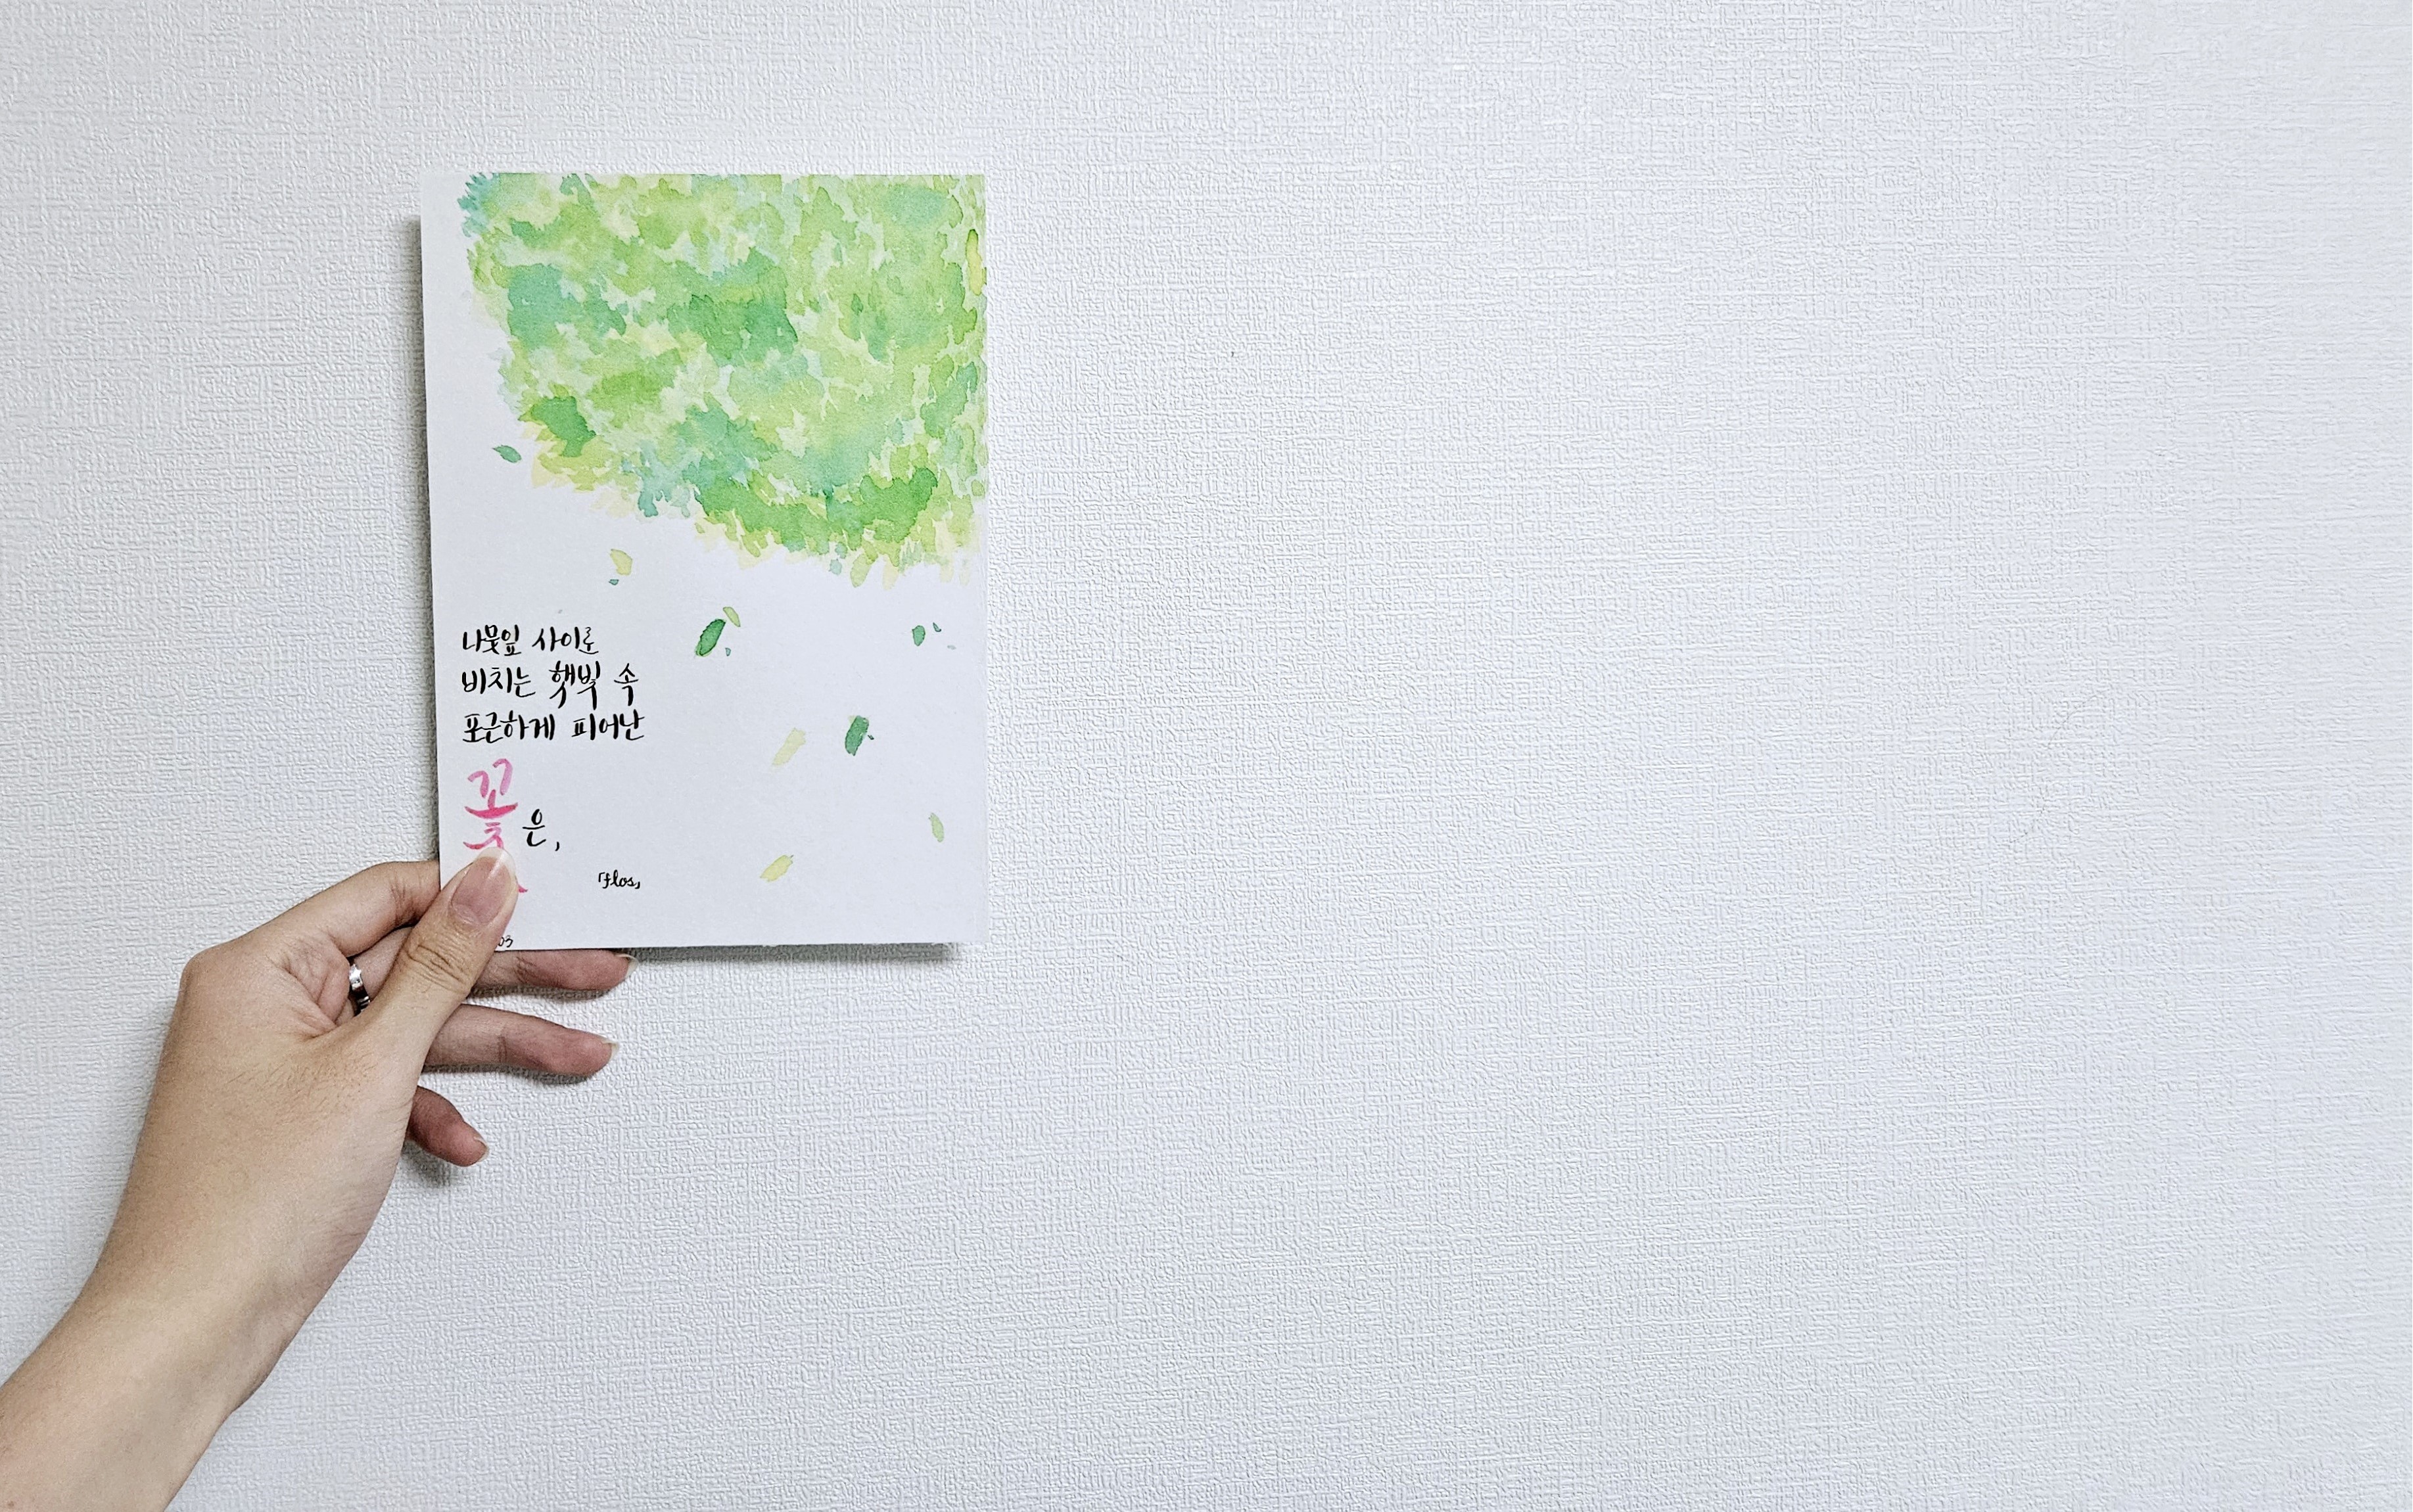 나뭇잎 사이로
비치는 햇빛 속
포근하게 피어난
꽃은,
「flos」
03